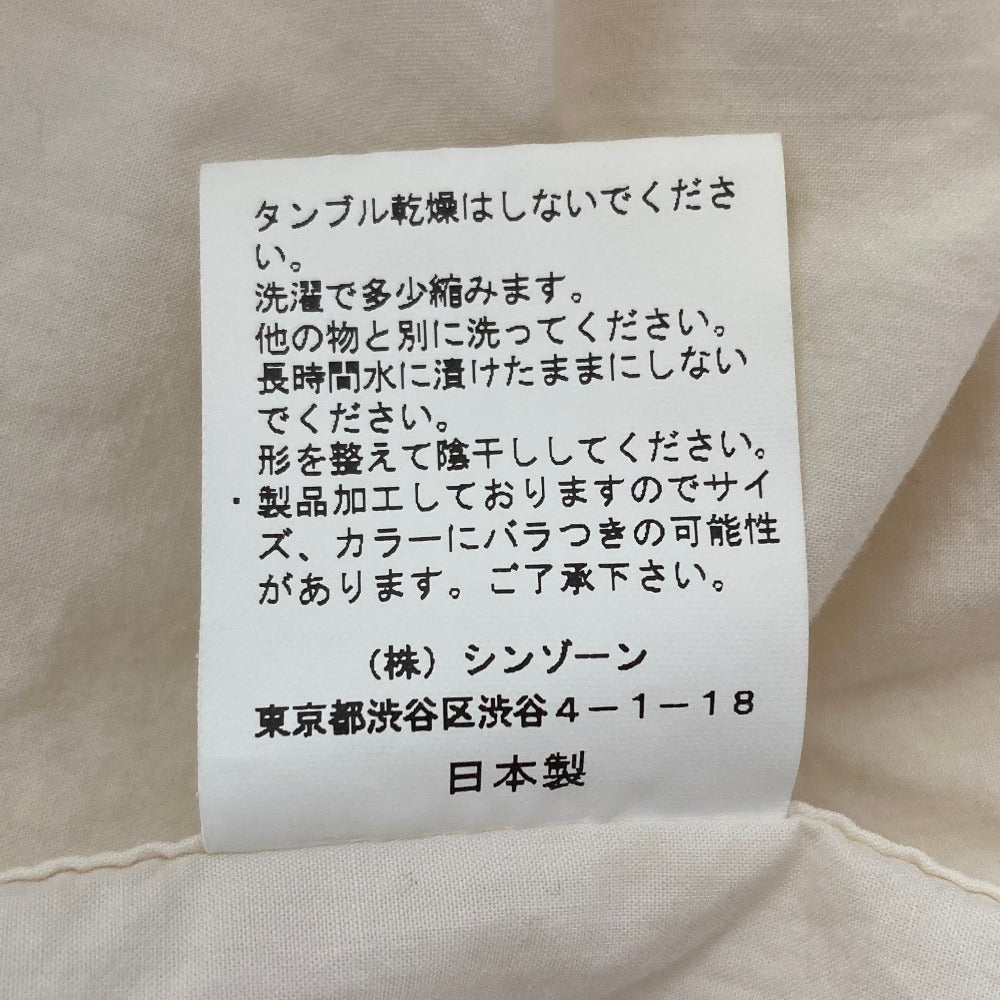 タンブル乾燥はしないでくださ
い。
洗濯で多少縮みます。
他の物と別に洗ってください。
長時間水に漬けたままにしない
でください。
形を整えて陰干ししてください。
・製品加工しておりますのでサイ
ズ、カラーにバラつきの可能性
があります。ご了承下さい。
（株）シンゾーン
東京都渋谷区渋谷４－１－１８
日本製